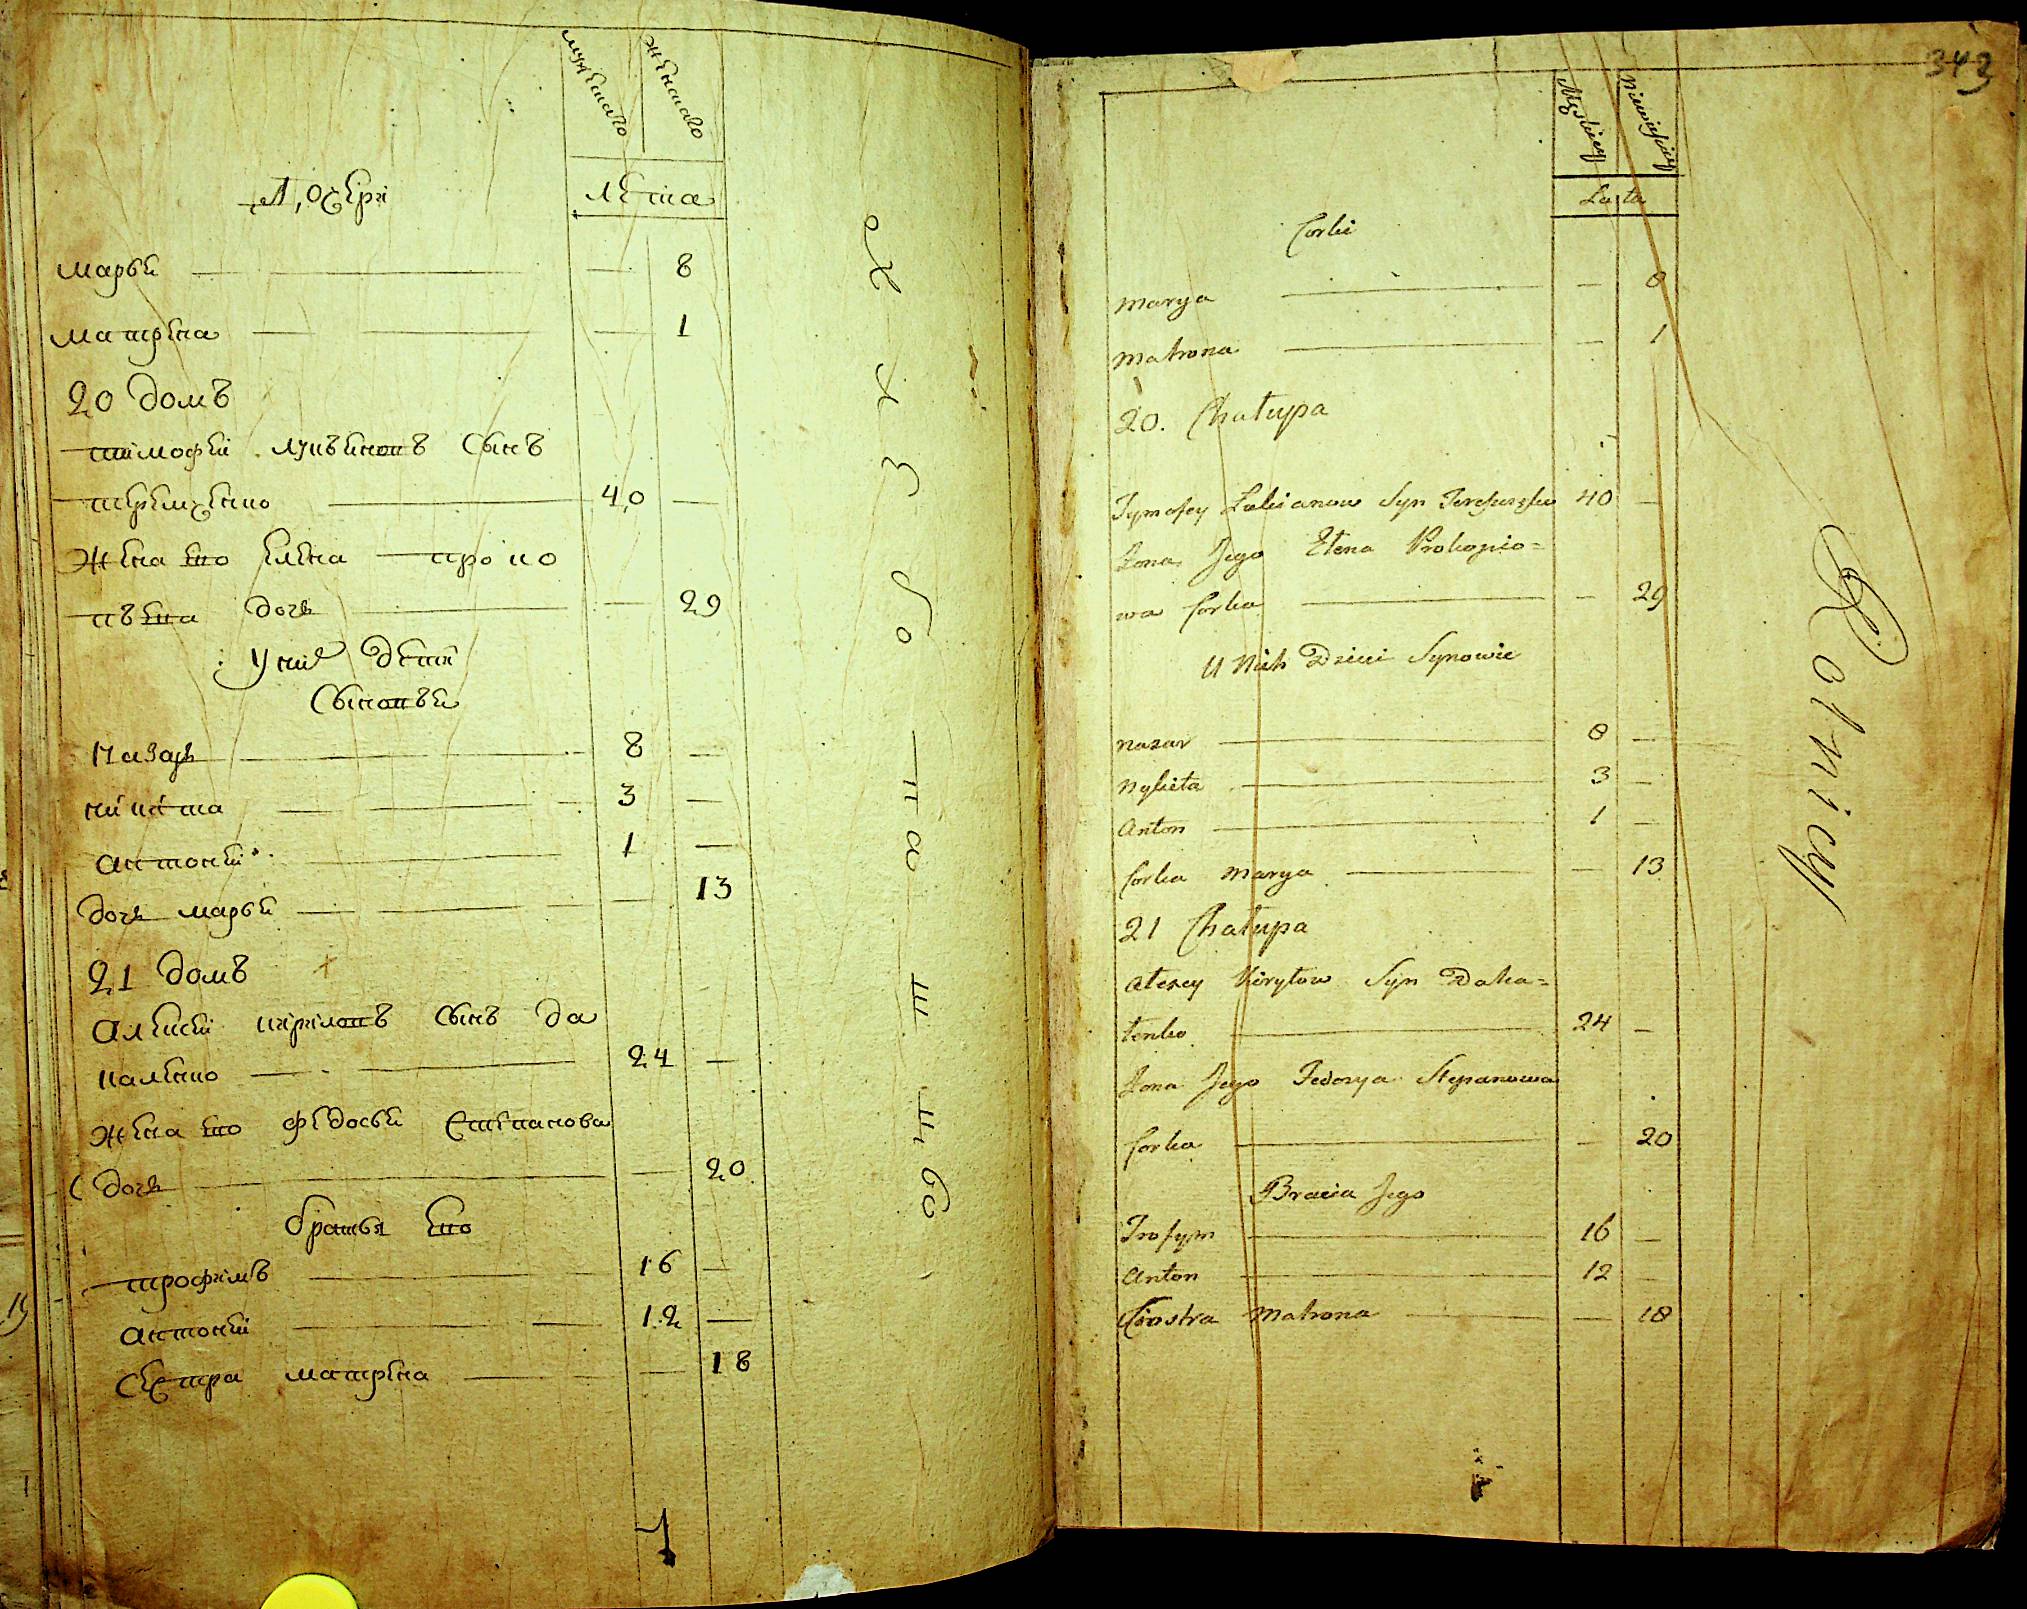 мужескаго
женскаго
Дочери
лета
марья — — 8
матрена — — 1
20 домъ
тимофей лукьяновъ сынъ
терещенко — 40 —
жена ево елена проко
пьева дочь — — 29
У них дети
сыновья
назаръ — 8 —
никита — 3 —
антоній — 1 —
дочь марья — — 13
21 домъ
алексей кириловъ сынъ да
каленко — 24 —
жена ево федосья степанова
дочь — — 20
братья ево
трофимъ — 16 —
антоній — 12 —
сестра матрена — — 18
343
Męskiey
Niewieściey
Lata
Corki
Marya — — 8
Matrona — — 1
20. Chałupa
Tymofey Lukianow Syn 40 —
Żona Jego Elena Prokopio=
wa Corka — — 29
U Nich Dzieci Synowie
Nazar — 8 —
Nykieta — 3 —
Anton — 1 —
Corka Marya — — 13
21 Chałupa
Alexey Kiryłow Syn Daka=
lenko — 24 —
Żona Jego Fedosya Stepanowa
Corka — — 20
Bracia Jego
Trofym — 16 —
Anton — 12 —
Siostra Matrona — — 18
Rolnicy